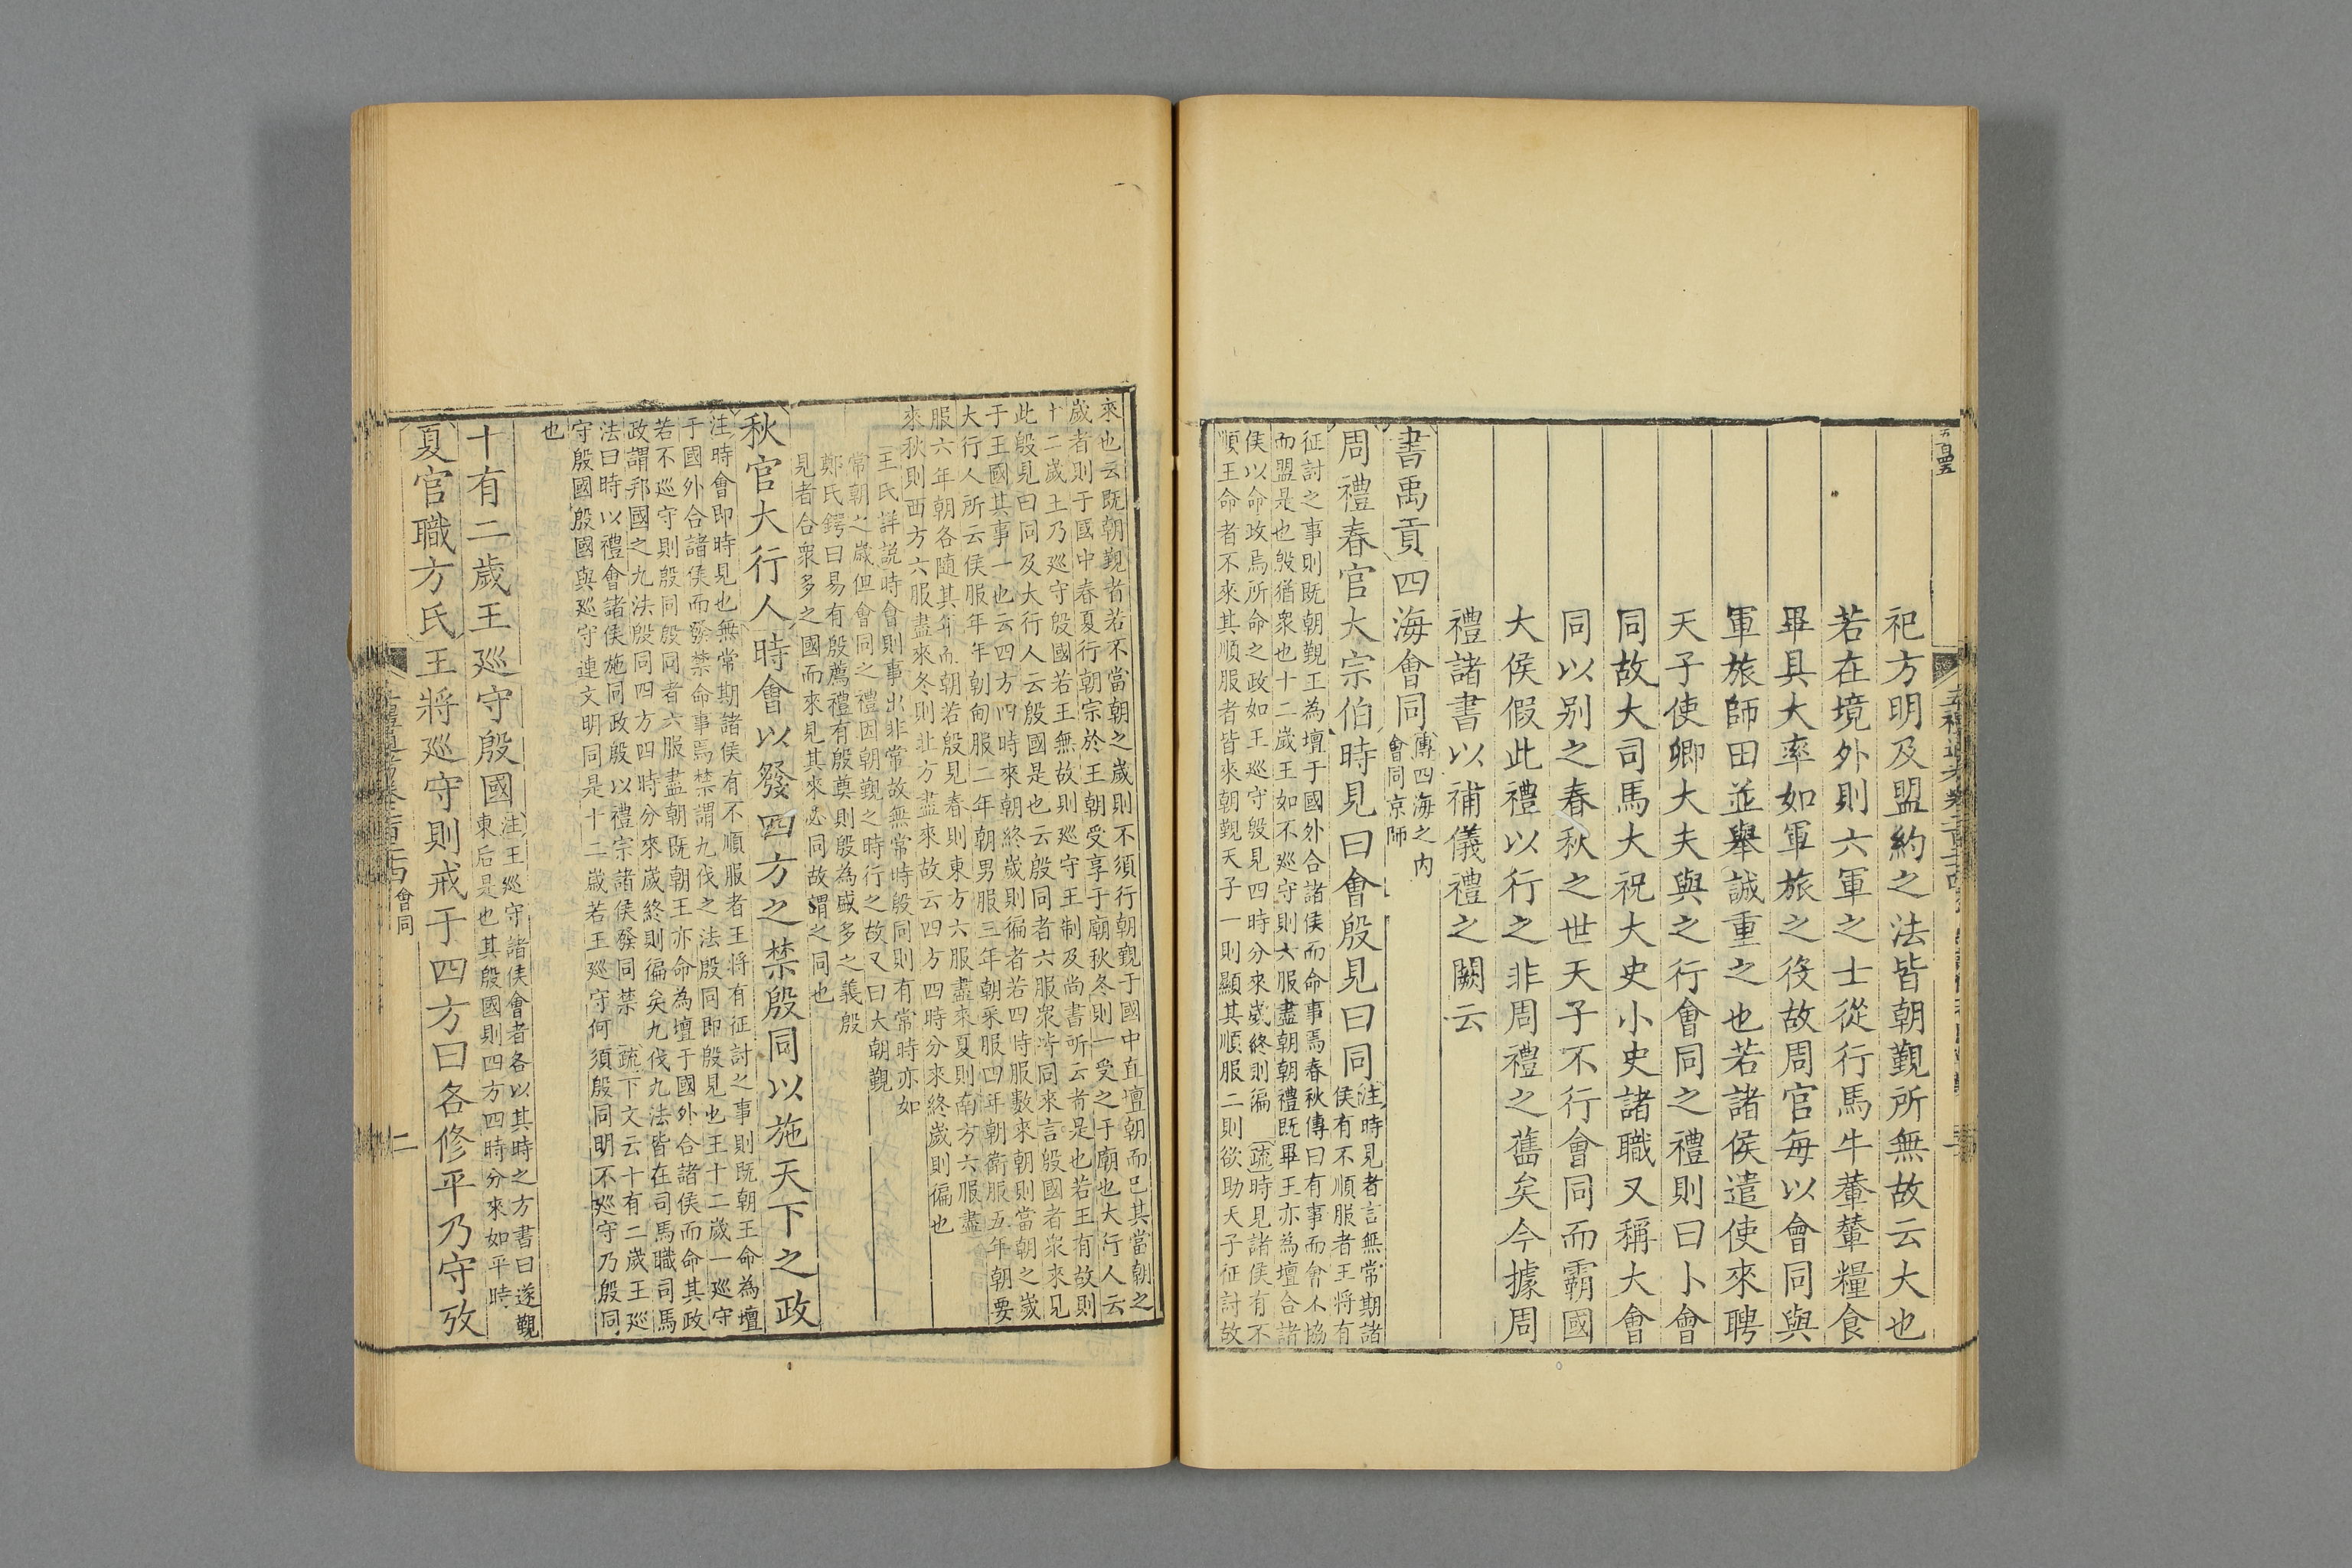 祀方明及盟約之法皆朝覲所無故云大也
若在境外則六軍之士從行馬牛輂輦糧食
畢具大率如軍旅之役故周官每以會同與
軍旅師田並舉誠重之也若諸侯遣使來聘
天子使卿大夫與之行會同之禮則曰卜會
同故大司馬大祝大史小史諸職又稱大會
同以别之春秋之世天子不行會同而霸國
大侯假此禮以行之非周禮之舊矣今據周
禮諸書以補儀禮之闕云
書禹貢四海會同
傳四海之内
會同京師
周禮春官大宗伯時見曰會殷見曰同
注時見者言無常期諸
侯有不順服者王將有
征討之事則既朝覲王為壇于國外合諸侯而命事焉春秋傳曰有事而會不協
而盟是也殷猶衆也十二歲王如不巡守則六服盡朝朝禮既畢王亦為壇合諸
侯以命政焉所命之政如王巡守殷見四時分來歲終則徧
疏時見諸侯有不
順王命者不來其順服者皆來朝覲天子一則顯其順服二則欲助天子征討故
來也云既朝覲者若不當朝之歲則不須行朝覲于國中直壇朝而已其當朝之
歲者則于國中春夏行朝宗於王朝受享于廟秋冬則一受之于廟也大行人云
十二歲王乃巡守殷國若王無故則巡守王制及尚書所云者是也若王有故則
此殷見曰同及大行人云殷國是也云殷同者六服衆皆同來言殷國者衆來見
于王國其事一也云四方四時來朝終歲則徧者若四時服數來朝則當朝之歲
大行人所云侯服年年朝甸服二年朝男服三年朝采服四年朝衛服五年朝要
服六年朝各隨其年而朝若殷見春則東方六服盡來夏則南方六服盡
來秋則西方六服盡來冬則北方盡來故云四方四時分來終歲則徧也
王氏詳説時會則事出非常故無常時殷同則有常時亦如
常朝之歲但會同之禮因朝覲之時行之故又曰大朝覲
鄭氏鍔曰易有殷薦禮有殷奠則殷為盛多之義殷
見者合衆多之國而來見其來必同故謂之同也
秋官大行人時會以發四方之禁殷同以施天下之政
注時會即時見也無常期諸侯有不順服者王將有征討之事則既朝王命為壇
于國外合諸侯而發禁命事焉禁謂九伐之法殷同即殷見也王十二歲一巡守
若不巡守則殷同殷同者六服盡朝既朝王亦命為壇于國外合諸侯而命其政
政謂邦國之九法殷同四方四時分來歲終則徧矣九伐九法皆在司馬職司馬
法曰時以禮會諸侯施同政殷以禮宗諸侯發同禁
疏下文云十有二歲王巡
守殷國殷國與巡守連文明同是十二歲若王巡守何須殷同明不巡守乃殷同
也
十有二歲王巡守殷國
注王巡守諸侯會者各以其時之方書曰遂覲
東后是也其殷國則四方四時分來如平時
夏官職方氏王將巡守則戒于四方曰各修平乃守攷
會同
二